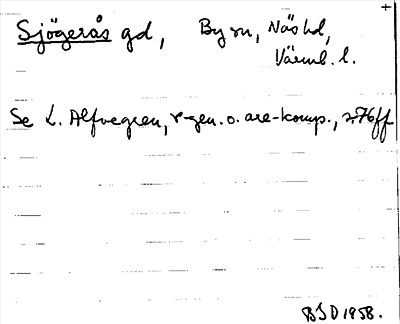 Sjögerås gd, By sn, Näs hd,
Värml. l.
Se L. Alfvegren, r-gen. o. are-komp., s. 76 ff
BSD 1958.